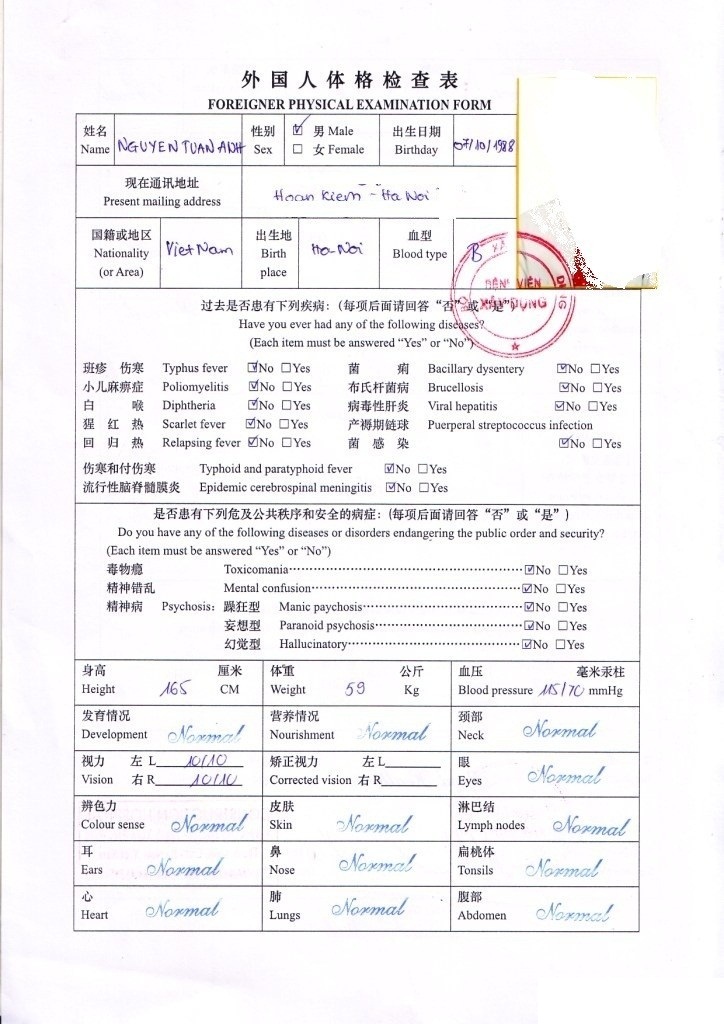 外国人体格检查表
FOREIGNER PHYSICAL EXAMINATION FORM
姓名 Name NGUYEN TUAN ANH 性别 Sex ☑ 男 Male ☐ 女 Female 出生日期 Birthday 07/10/1988
现在通讯地址
Present mailing address Hoan Kiem - Ha Noi
国籍或地区 Nationality (or Area) Viet Nam 出生地 Birth place Ha-Noi 血型 Blood type B
BỆNH VIỆN
XÂY DỰNG
过去是否患有下列疾病：(每项后面请回答“否”或“是”)
Have you ever had any of the following diseases?
(Each item must be answered “Yes” or “No”)
班疹 伤寒 Typhus fever ☑No ☐Yes 菌 痢 Bacillary dysentery ☑No ☐Yes
小儿麻痹症 Poliomyelitis ☑No ☐Yes 布氏杆菌病 Brucellosis ☑No ☐Yes
白 喉 Diphtheria ☑No ☐Yes 病毒性肝炎 Viral hepatitis ☑No ☐Yes
猩 红 热 Scarlet fever ☑No ☐Yes 产褥期链球 Puerperal streptococcus infection
回 归 热 Relapsing fever ☑No ☐Yes 菌 感 染 ☑No ☐Yes
伤寒和付伤寒 Typhoid and paratyphoid fever ☑No ☐Yes
流行性脑脊髓膜炎 Epidemic cerebrospinal meningitis ☑No ☐Yes
是否患有下列危及公共秩序和安全的病症：(每项后面请回答“否”或“是”)
Do you have any of the following diseases or disorders endangering the public order and security?
(Each item must be answered “Yes” or “No”)
毒物瘾 Toxicomania ☑No ☐Yes
精神错乱 Mental confusion ☑No ☐Yes
精神病 Psychosis: 躁狂型 Manic paychosis ☑No ☐Yes
妄想型 Paranoid psychosis ☑No ☐Yes
幻觉型 Hallucinatory ☑No ☐Yes
身高 厘米 体重 公斤 血压 毫米汞柱
Height 165 CM Weight 59 Kg Blood pressure 115/70 mmHg
发育情况 营养情况 颈部
Development Normal Nourishment Normal Neck Normal
视力 左 L 10/10 矫正视力 左 L 眼
Vision 右 R 10/10 Corrected vision 右 R Eyes Normal
辨色力 皮肤 淋巴结
Colour sense Normal Skin Normal Lymph nodes Normal
耳 鼻 扁桃体
Ears Normal Nose Normal Tonsils Normal
心 肺 腹部
Heart Normal Lungs Normal Abdomen Normal